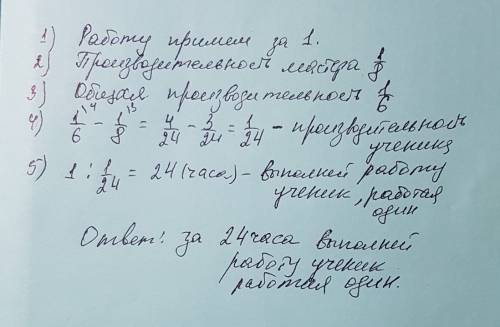 1) Работу примем за 1.
2) Производительность мастера 1/8
3) Общая производительность 1/6
4) 1/6 \4 - 1/8 \3 = 4/24 - 3/24 = 1/24 - производительность
ученика
5) 1 : 1/24 = 24 (часа) - выполней работу
ученик, работая
один
Ответ: за 24 часа выполней
работу ученик
работая один.